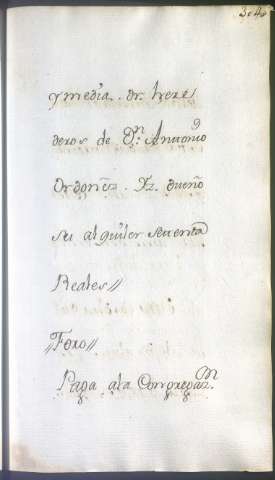 304
y media. dr. here
deros de Dn. Antonio
Ordoñez. Yz. dueño
su alquiler settenta
Reales//
//Foro//
Paga ala Congregazn.